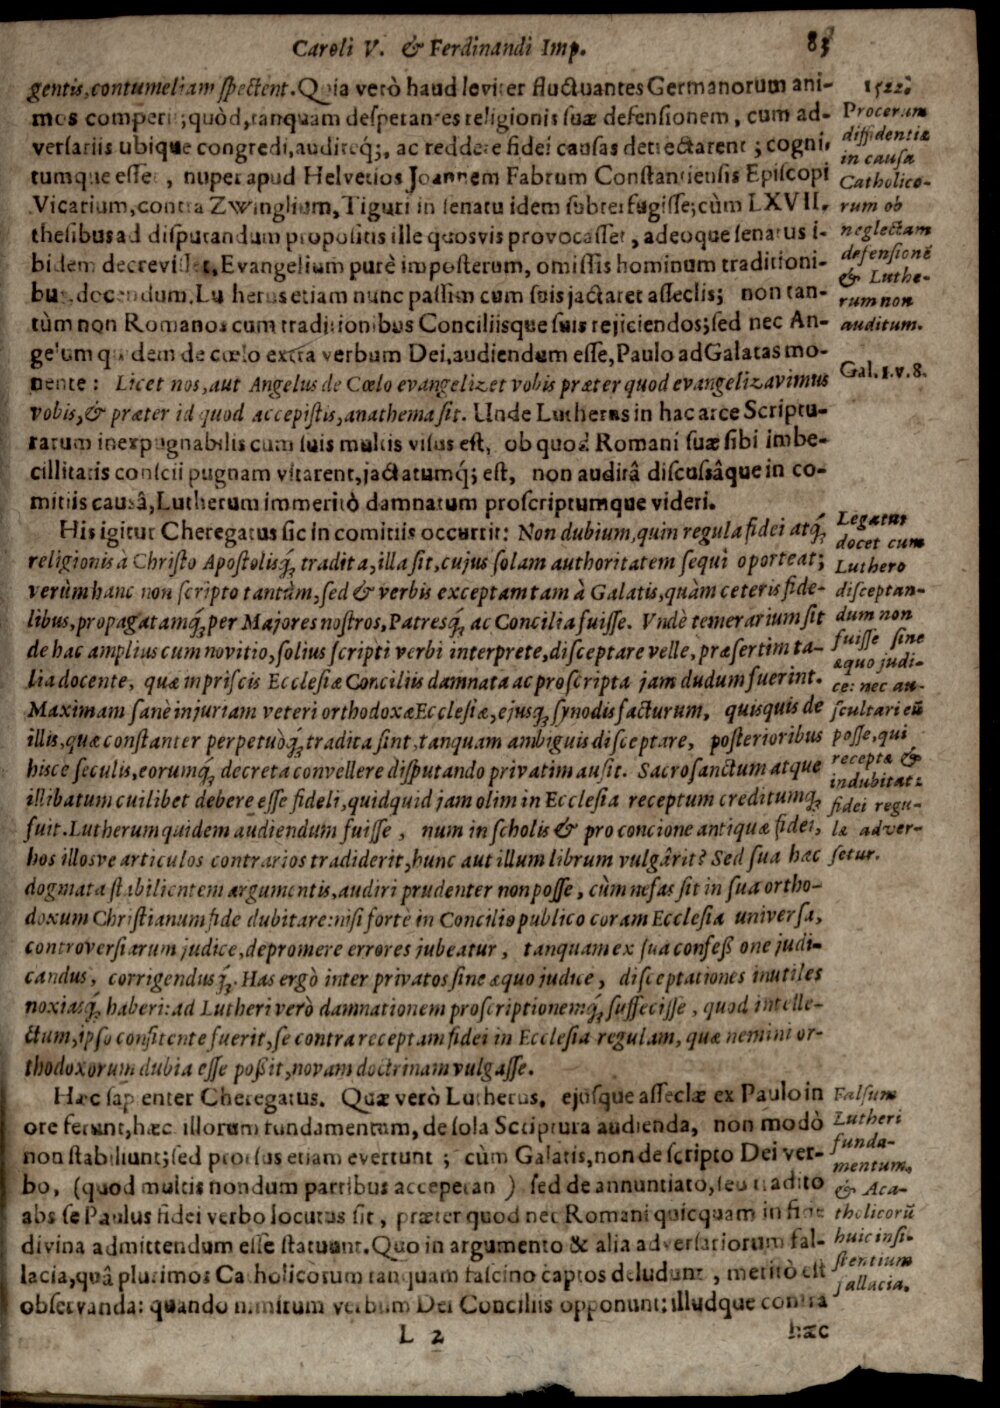 Caroli V. & Ferdinandi Imp. 83
gentis, contumeliam spectent. Quia verò haud leviter fluctuantes Germanorum ani-
mos comperit; quòd, tanquam desperantes religionis suæ defensionem, cum ad-
versariis ubique congredi, audireq;, ac reddere fidei causas detrectarent; cogni-
tumque esset, nuper apud Helvetios Joannem Fabrum Constantiensis Episcopi
Vicarium, contra Zwinglium, Tiguri in senatu idem subterfugisse; cùm LXVII.
thesibus ad disputandum propositis ille quosvis provocasset, adeoque senatus i-
bidem decrevisset, Evangelium purè imposterum, omissis hominum traditioni-
bus, docendum. Lutherus etiam nunc passim cum suis jactaret asseclis; non tan-
tùm non Romanos cum traditionibus Conciliisque suis rejiciendos; sed nec An-
gelum quidem de cœlo extra verbum Dei, audiendum esse, Paulo ad Galatas mo-
nente: Licet nos, aut Angelus de Cœlo evangelizet vobis præter quod evangelizavimus
vobis, & præter id quod accepistis, anathema sit. Unde Lutherus in hac arce Scriptu-
rarum inexpugnabilis cum suis multis visus est, ob quod Romani suæ sibi imbe-
cillitatis conscii pugnam vitarent, jactatumq́; est, non auditâ discussâque in co-
mitiis causâ, Lutherum immeritò damnatum proscriptumque videri.
His igitur Cheregatus sic in comitiis occurrit: Non dubium, quin regula fidei atq́;
religionis à Christo Apostolisq́; tradita, illa sit, cujus solam authoritatem sequi oporteat;
verùm hanc non scripto tantùm, sed & verbis exceptam tam à Galatis, quàm ceteris fide-
libus, propagatamq́; per Majores nostros, Patresq́; ac Concilia fuisse. Vndè temerarium sit
de hac amplius cum novitio, solius scripti verbi interprete, disceptare velle, præsertim ta-
lia docente, quæ in priscis Ecclesiæ Conciliis damnata ac proscripta jam dudum fuerint.
Maximam sanè injuriam veteri orthodoxæ Ecclesiæ, ejusq́; synodis facturum, quisquis de
illis, quæ constanter perpetuòq́; tradita sint, tanquam ambiguis disceptare, posterioribus
hisce seculis, eorumq́; decreta convellere disputando privatim ausit. Sacrosanctum atque
illibatum cuilibet debere esse fideli, quidquid jam olim in Ecclesia receptum creditumq́;
fuit. Lutherum quidem audiendum fuisse, num in scholis & pro concione antiquæ fidei,
hos illosve articulos contrarios tradiderit, hunc aut illum librum vulgârit? Sed sua hæc
dogmata stabilientem argumentis, audiri prudenter non posse, cùm nefas sit in sua ortho-
doxum Christianum fide dubitare: nisi fortè in Concilio publico coram Ecclesia universa,
controversiarum judice, depromere errores jubeatur, tanquam ex sua confeßione judi-
candus, corrigendusq́;. Has ergò inter privatos sine æquo judice, disceptationes inutiles
noxiasq́; haberi: ad Lutheri verò damnationem proscriptionemq́; suffecisse, quod intelle-
ctum, ipso confitente fuerit, se contra receptam fidei in Ecclesia regulam, quæ nemini or-
thodoxorum dubia esse poßit, novam doctrinam vulgasse.
Hæc sapienter Cheregatus. Quæ verò Lutherus, ejusque asseclæ ex Paulo in
ore ferunt, hæc illorum fundamentum, de sola Scriptura audienda, non modò
non stabiliunt; sed prorsus etiam evertunt; cùm Galatis, non de scripto Dei ver-
bo, (quod multis nondum partibus acceperant) sed de annuntiato, seu tradito
abs se Paulus fidei verbo locutus sit, præter quod nec Romani quicquam in fide
divina admittendum esse statuunt. Quo in argumento & alia adversariorum fal-
lacia, quâ plurimos Catholicorum tanquam fascino captos deludunt, meritò est
observanda: quando nimirum verbum Dei Conciliis opponunt: illudque contra
L 2 hæc
1522.
Procerum
diffidentia
in causa
Catholico-
rum ob
neglectam
defensionẽ
& Luthe-
rum non
auditum.
Gal. 1. v. 8.
Legatus
docet cum
Luthero
disceptan-
dum non
fuisse sine
æquo judi-
ce: nec au-
scultari eũ
posse, qui
receptæ &
indubitatæ
fidei regu-
læ adver-
setur.
Falsum
Lutheri
funda-
mentum,
& Aca-
tholicorũ
huic insi-
stentium
fallacia.